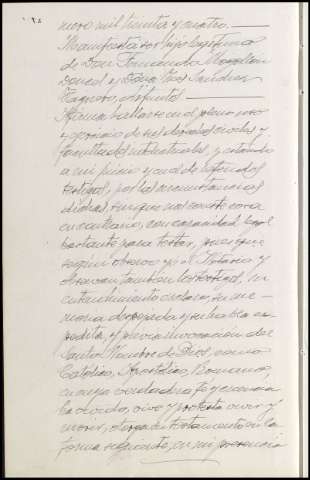 mero mil treinta y cuatro.
Manifiesta ser hijo legítimo
de Don Fernando
y Doña
difuntos
Afirma hallarse en el pleno uso
y ejercicio de sus derechos civiles y
facultades intelectuales, y estando
a mi juicio y en el de referidos
testigos, por las circunstancias
dichas, sin que nos conste cosa
en contrario, con capacidad legal
bastante para testar, pues que
según observo yo el Notario y
observan también los testigos, su
entendimiento es claro, su me-
moria despejada y su habla ex-
pedita, y previa invocación del
Santo Nombre de Dios, como
Católico, Apostólico, Romano,
en cuya verdadera fe y creencia
ha vivido, vive y protesta vivir y
morir, otorga su testamento en la
forma siguiente, en mi presencia